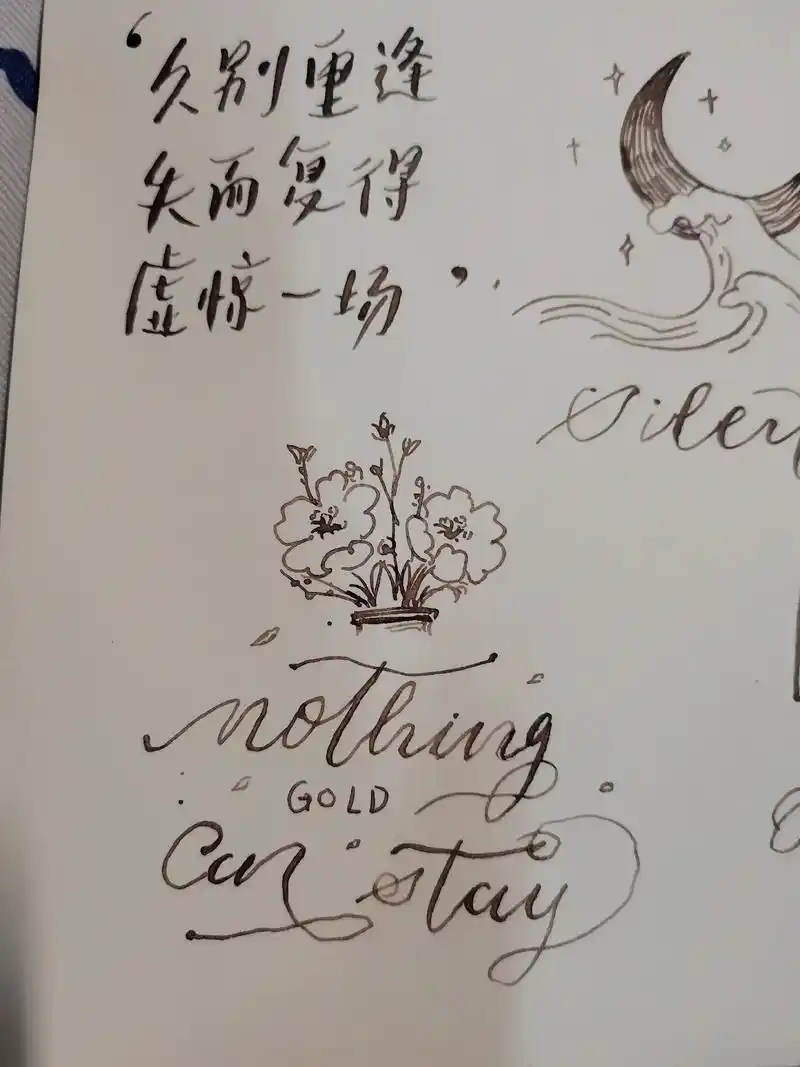 ‘久别重逢
失而复得
虚惊一场’.
nothing
GOLD
can stay